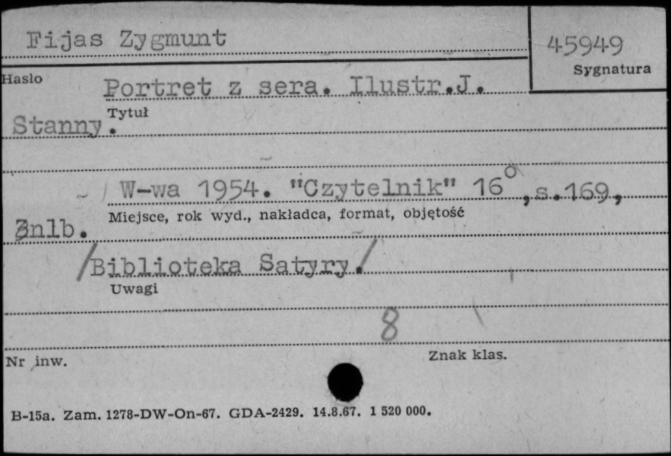 Fijas Zygmunt
45949
Sygnatura
Hasło
Portret z sera. Ilustr.J.
Tytuł
Stanny.
W-wa 1954. "Czytelnik" 16°, s.169,
Miejsce, rok wyd., nakładca, format, objętość
3nlb.
/Biblioteka Satyry./
Uwagi
8
Nr inw.
Znak klas.
B-15a. Zam. 1278-DW-On-67. GDA-2429. 14.8.67. 1 520 000.